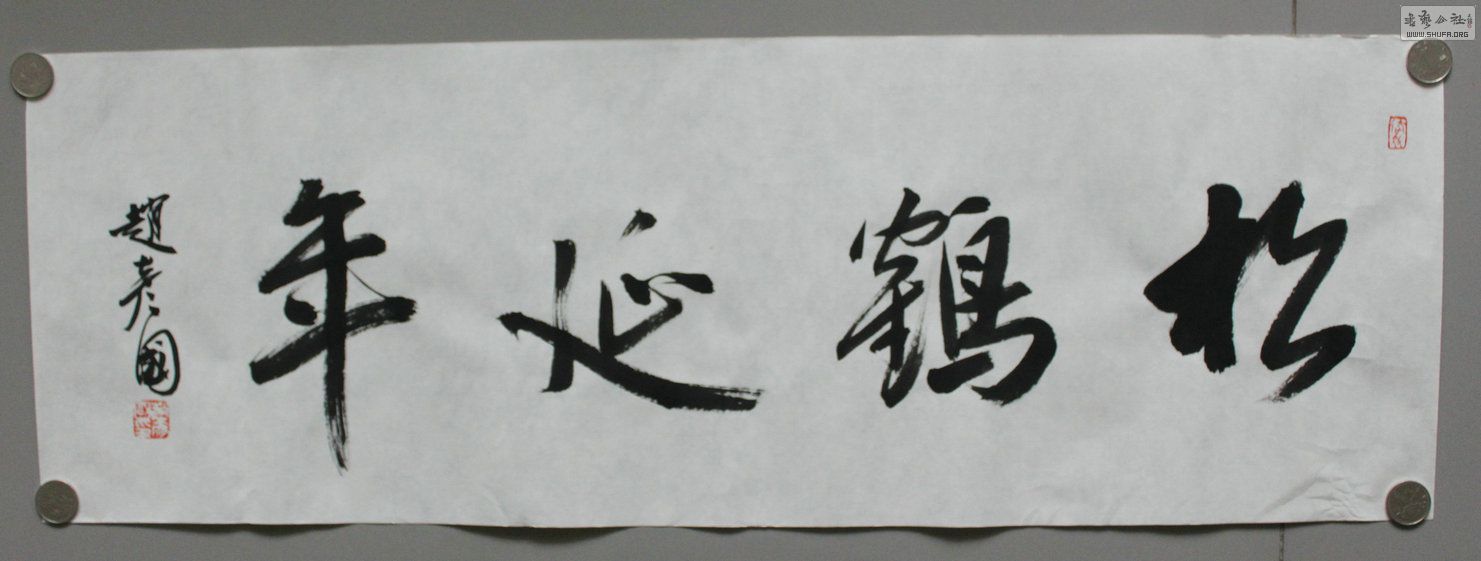 松鶴延年
趙彦國
書藝公社
WWW.SHUFA.ORG